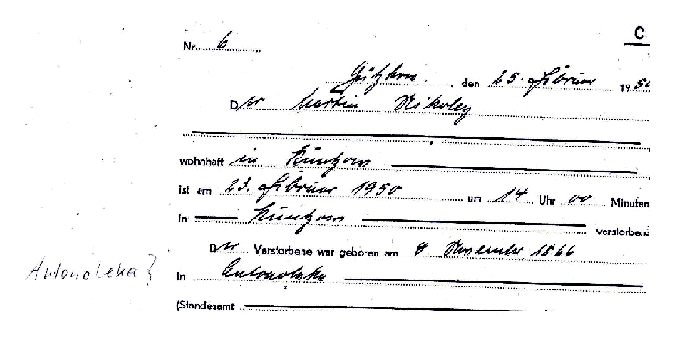 C
Nr. 6
Gützkow, den 25. Februar 1950
Der Martin Nikoley
wohnhaft in Kuntzow
ist am 23. Februar 1950 um 14 Uhr 00 Minuten
in Kuntzow verstorben.
Der Verstorbene war geboren am 8 November 1866
Antonoleka?
in
(Standesamt